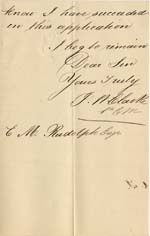 know I have succeeded
in this application
I beg to remain
Dear Sir
Yours Truly
J. W. Clark
C. M. Rudolph Esqr